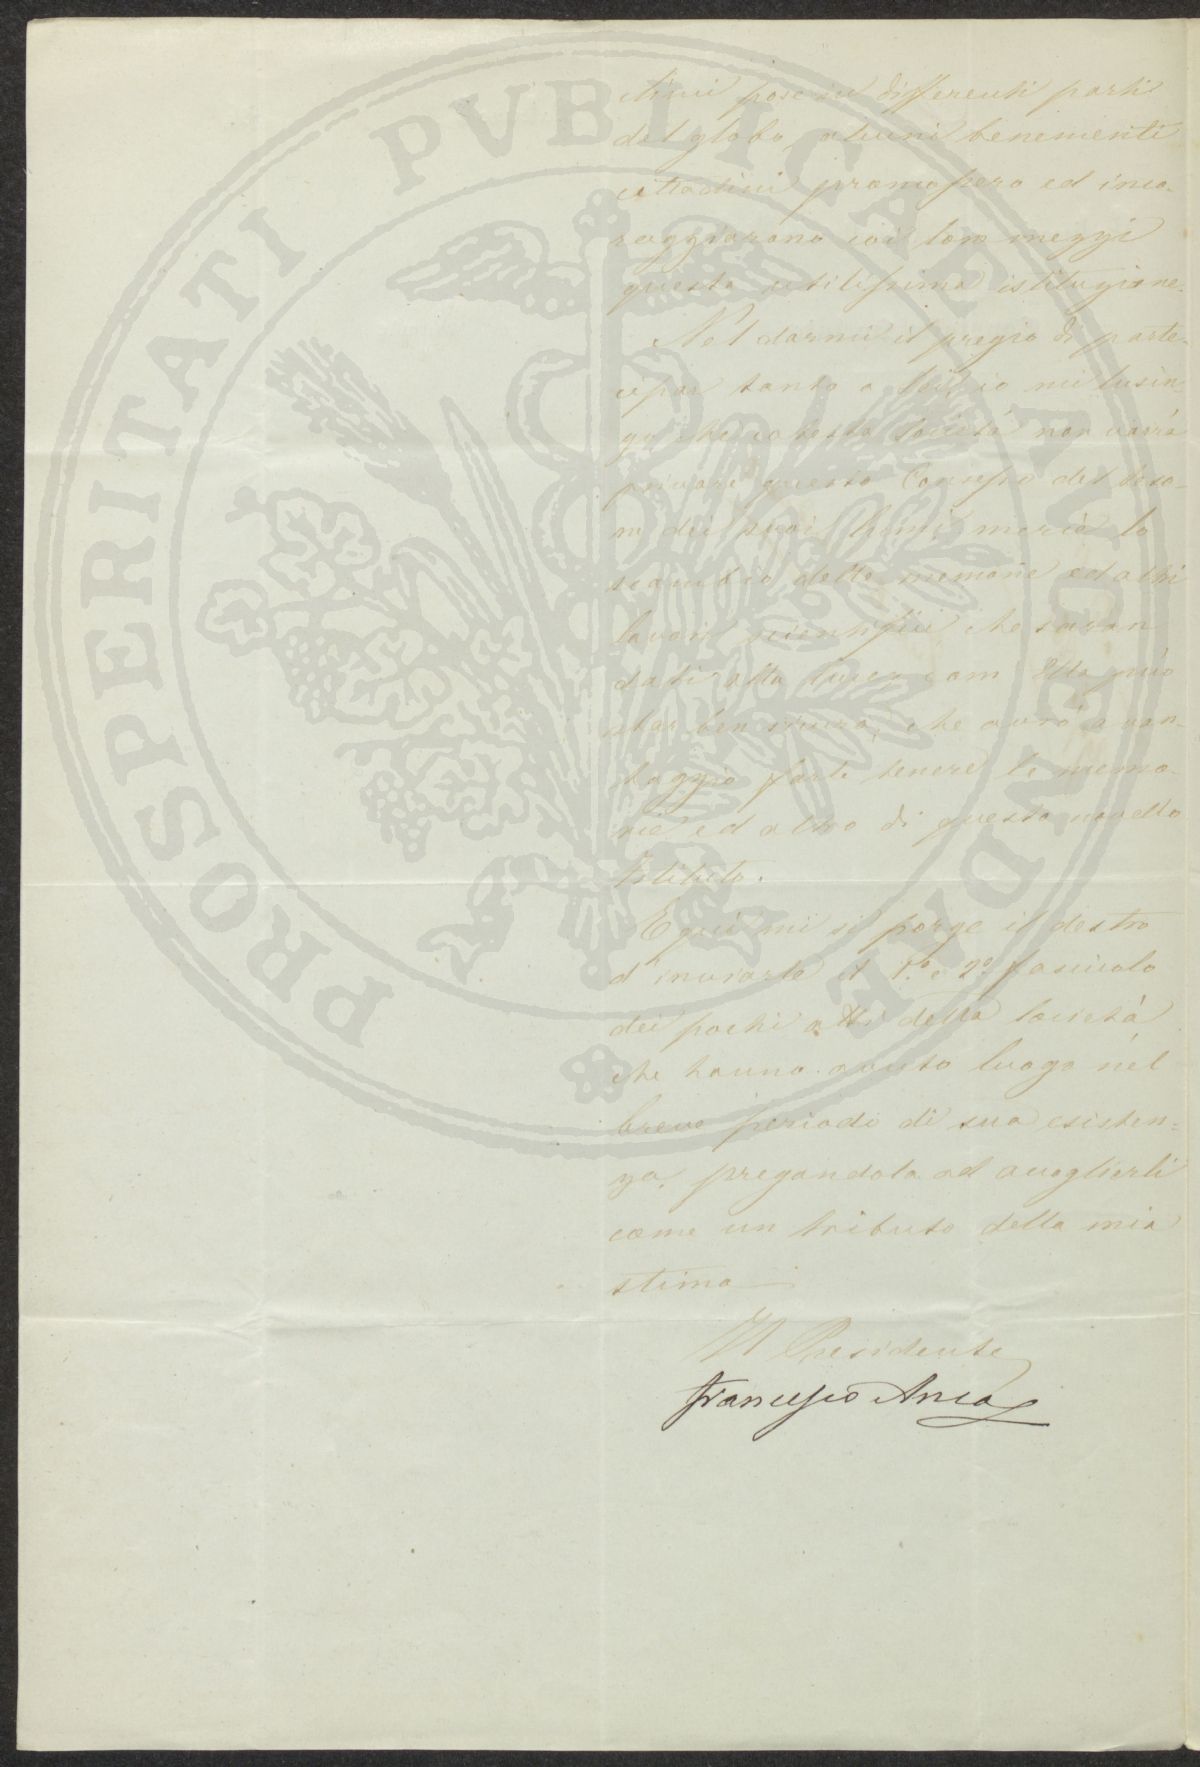 tivivi pose in differenti parti
del globo, alcuni benemeriti
cittadini promossero ed inco-
raggiarono coi loro mezzi
questa utilissima istituzione.
Nel darmi il pregio di parte-
cipar tanto a Lei, io mi lusin-
go che cotesta Società non vorrà
privare questo Consesso del teso-
ro dei suoi lumi, mercè lo
scambio delle memorie ed altri
lavori scientifici che saran
dati alla luce, com Ella può
star ben sicura, che avrò a van-
taggio farle tenere le memo-
rie ed altro di questo novello
Istituto.
E quì mi si porge il destro
d'inviarle il 1.º e 2.º fascicolo
dei pochi atti della Società
che hanno avuto luogo nel
breve periodo di sua esisten-
za, pregandola ad accoglierli
come un tributo della mia
stima
Il Presidente
Francesco Anca
PROSPERITATI PVBLICAE AVGENDAE